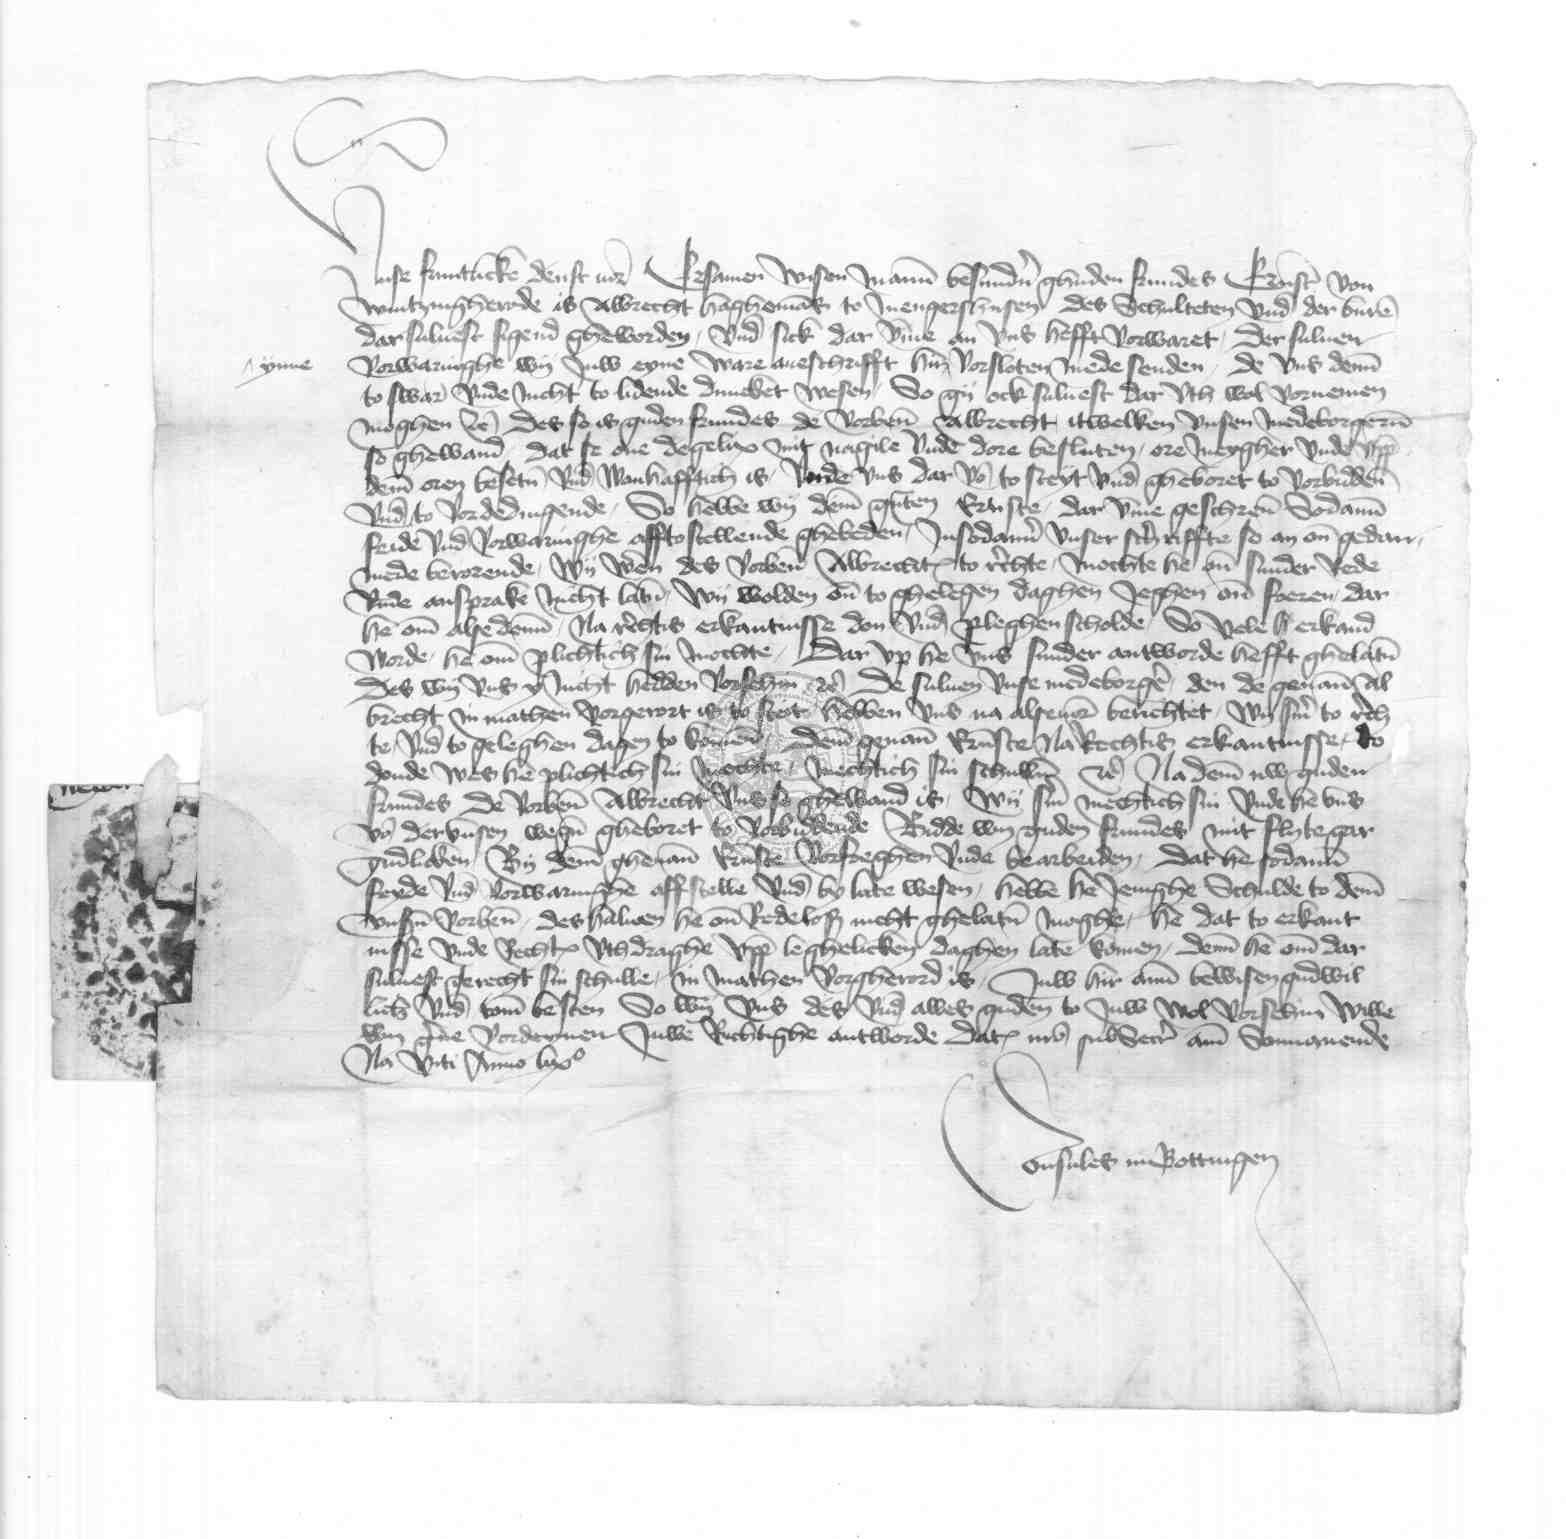 Unse fruntlicke denst uor Ersamen wisen manne besundern ghuden frundes Ernst von
wintzingherode is Albrecht haghemans to mengershusen des Schulteten vnd der bure
dar suluest figend gheworden, vnd sick dar vmme an vns hefft vorwaret, Der suluen
ymme vorwaringhe wij Juw eyne ware aueschrifft hir vorsloten mede senden, de vns denn
to swar vnde nicht to lidende duncket wesen, So gij ock suluest dar vth wol vornemen
moghen etc Des so is guden frundes de vorben Albrecht itwelken vnsen medeborgern
so ghewand, dat se one degelix mit nagile vnde dore besluten, ore meygher vnde vpp
dem oren besetn vnd wonhafftich is, vnde vns dar vo to steyt vnd gheboret to vorbidden
vnd to vordedingende, So hebbe wij dem guten Ernste, dar vmme geschreuen Sodann
feide vnd vorwaringhe afftostellende ghebeden, Insodanner vnser schriffte so an on gedan,
mede berorende, wij weren des vorben Albrechtes to rechte, mochte he on sunder rede
vnde ansprake nicht laten, wij wolden on to ghelegen daghen Jeghen om foeren, dar
he om alsedenn, Na rechtis erkantnisse don vnd pleghen scholde, So vele he erkand
worde, he om plichtich sin mochte, Dar vp he vns sunder antworde hefft ghelaten
Des wij vns nicht hedden vorsehin etc De suluen vnse medeborger, den de genann Al
brecht in mathen vorgerort is to steit hebben vns na alseuor berichtet, wij sin to rech
te, vnd to geleghen dagen to komen, Dem genann Ernste Na Rechtis erkantnisse, to
donde wes he plichtich sin mochte, mechtich sin schullen etc Na dem nw guden
frundes De vorben Albrecht vns so ghewand is, wij sin mechtich sin vnde he vns
vo der vnsen wegen gheboret to vorbiddende Bidde wy guden frundes mit flyte gar
gudliken, Bij dem ghenann Ernste, vorfoghen vnde bearbeiden, Dat he sodann
feyde vnd vorwaringhe affstelle vnd by late wesen, hebbe he Jenighe Schulde to dem
vnsen vorben, des haluen he on Redelosz nicht ghelaten moghe, he dat to erkant
nisse vnde Rechtes vthdraghe vpp leghelicken daghen late komen, denn he om dar
suluest gerecht sin schulle, in mathen vorgherord is, Juw hir ann bewisen gudwil
lich vnd tom besten So wij vns des vnd alles guden to Juw wol vorsehin wille
wy gerne vordeynen Juwe Richtighe antworde Datum nostro sub Secreto am Sonnauende
Na viti Anno lxo
Consules in Gottingen